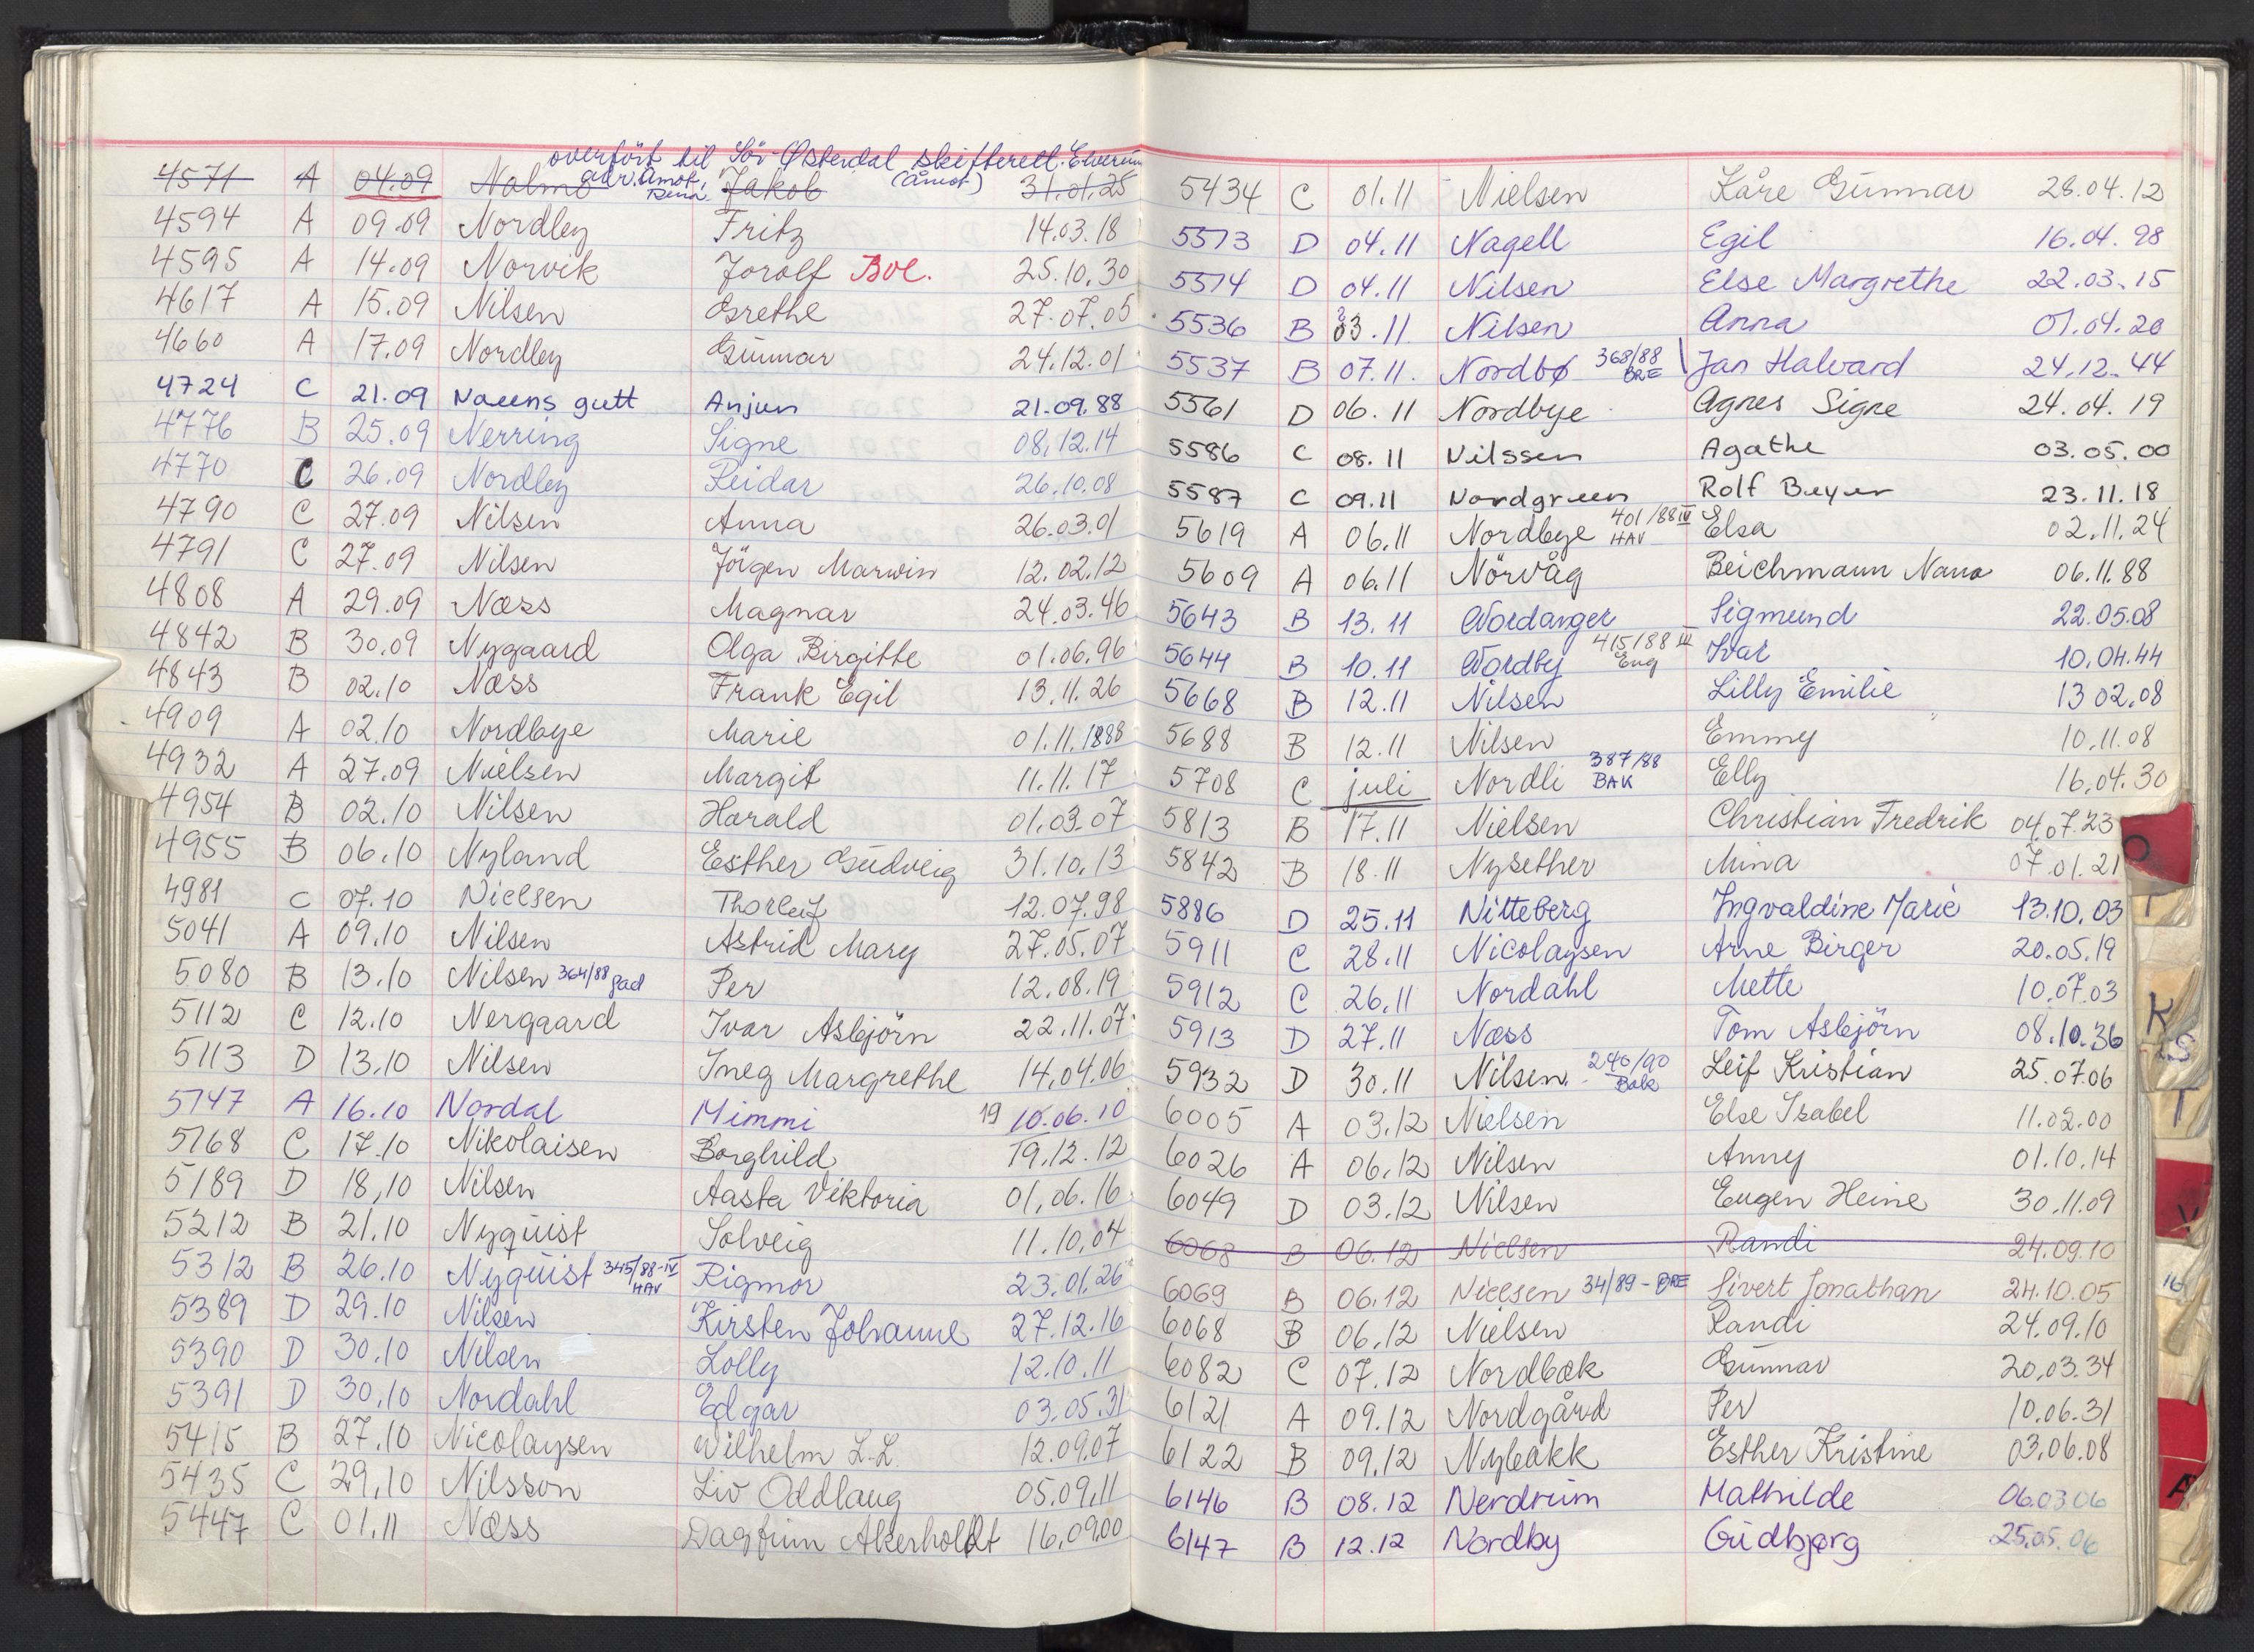 overført til Sör-Østerdal skifterett. Elverum
4571 A 04.09 Nalmo adr. Åmot, Rena. Jakob (åmot) 31.01.25
4594 A 09.09 Nordley Fritz 14.03.18
4595 A 14.09 Norvik Jorolf Bol. 25.10.30
4617 A 15.09 Nilsen Grethe 27.07.05
4660 A 17.09 Nordley Gunnar 24.12.01
4724 C 21.09 Naeens gutt Anjun 21.09.88
4776 B 25.09 Nerring Signe 08.12.14
4770 C 26.09 Nordley Reidar 26.10.08
4790 C 27.09 Nilsen Anna 26.03.01
4791 C 27.09 Nilsen Jörgen Marwin 12.02.12
4808 A 29.09 Næss Magnar 24.03.46
4842 B 30.09 Nygaard Olga Birgitte 01.06.96
4843 B 02.10 Næss Frank Egil 13.11.26
4909 A 02.10 Nordbye Marie 01.11.1888
4932 A 27.09 Nielsen Margit 11.11.17
4954 B 02.10 Nilsen Harald 01.03.07
4955 B 06.10 Nyland Esther Gudveig 31.10.13
4981 C 07.10 Nielsen Thorleif 12.07.98
5041 A 09.10 Nilsen Astrid Mary 27.05.07
5080 B 13.10 Nilsen 364/88 gad Per 12.08.19
5112 C 12.10 Nergaard Ivar Asbjörn 22.11.07
5113 D 13.10 Nilsen Ineg Margrethe 14.04.06
5147 A 16.10 Nordal Mimmi 19 10.06.10
5168 C 17.10 Nikolaisen Borghild 19.12.12
5189 D 18.10 Nilsen Aasta Viktoria 01.06.16
5212 B 21.10 Nyquist Solveig 11.10.04
5312 B 26.10 Nyquist 345/88-IV HAV Rigmor 23.01.26
5389 D 29.10 Nilsen Kirsten Johanne 27.12.16
5390 D 30.10 Nilsen Lolly 12.10.11
5391 D 30.10 Nordahl Edgar 03.05.31
5415 B 27.10 Nicolaysen Wilhelm L.L. 12.09.07
5435 C 29.10 Nilsson Liv Oddlaug 05.09.11
5447 C 01.11 Næss Dagfinn Akerholdt 16.09.00
5434 C 01.11 Nielsen Kåre Gunnar 28.04.12
5513 D 04.11 Nagell Egil 16.04.98
5514 D 04.11 Nilsen Else Margrethe 22.03.15
5536 B 03.11 Nilsen Anna 01.04.20
5537 B 07.11. Nordbø 368/88 BRE Jan Halvard 24.12.44
5561 D 06.11 Nordbye Agnes Signe 24.04.19
5586 C 08.11 Nilssen Agathe 03.05.00
5587 C 09.11 Nordgreen Rolf Beyer 23.11.18
5619 A 06.11 Nordbye 401/88 IV HAV Elsa 02.11.24
5609 A 06.11 Nörvåg Beichmann Nana 06.11.88
5643 B 13.11 Nordanger Sigmund 22.05.08
5644 B 10.11 Nordby 415/88 III Eng Ivar 10.04.44
5668 B 12.11 Nilsen Lilly Emilie 13 02.08
5688 B 12.11 Nilsen Emmy 10.11.08
5708 C juli Nordli 387/88 BAK Elly 16.04.30
5813 B 17.11 Nielsen Christian Fredrik 04.07.23
5842 B 18.11 Nysether Mina 07.01.21
5886 D 25.11 Nitteberg Ingvaldine Marie 13.10.03
5911 C 28.11 Nicolaysen Arne Birger 20.05.19
5912 C 26.11 Nordahl Mette 10.07.03
5913 D 27.11 Næss Tom Asbjörn 08.10.36
5932 D 30.11 Nilsen 240/90 Bak Leif Kristian 25.07.06
6005 A 03.12 Nielsen Else Isabel 11.02.00
6026 A 06.12 Nilsen Anny 01.10.14
6049 D 03.12 Nilsen Eugen Heine 30.11.09
6068 B 06.12 Nielsen Randi 24.09.10
6069 B 06.12 Nielsen 34/89 - BRE Sivert Jonathan 24.10.05
6068 B 06.12 Nielsen Randi 24.09.10
6082 C 07.12 Nordbæk Gunnar 20.03.34
6121 A 09.12 Nordgård Per 10.06.31
6122 B 09.12 Nybakk Esther Kristine 03.06.08
6146 B 08.12 Nerdrum Mathilde 06.03 06
6147 B 12.12 Nordby Gudbjørg 25.05.06
O
K
S
T
V
16
A